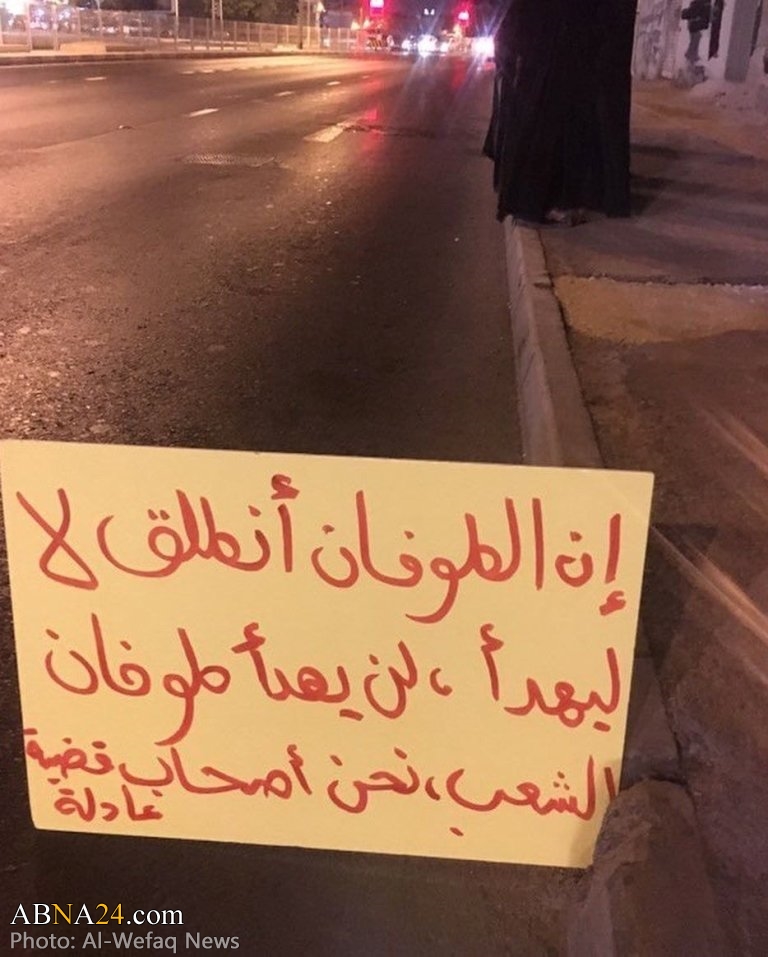 إن الطوفان أنطلق لا
ليهدأ ، لن يهدأ طوفان
الشعب ، نحن أصحاب قضية
عادلة
ABNA24.com
Photo: Al-Wefaq News